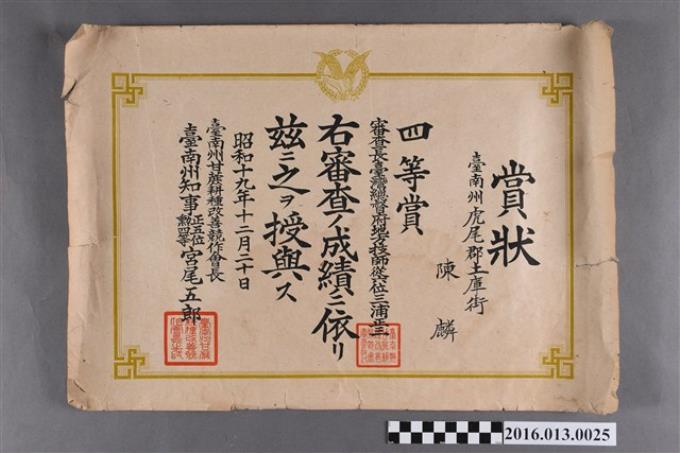 賞狀
臺南州虎尾郡土庫街
陳麟
四等賞
審査長臺灣總督府地方技師從六位三浦正三
右審査ノ成績ニ依リ
茲ニ之ヲ授與ス
昭和十九年十二月二十日
臺南州甘蔗耕種改善競作會長
臺南州知事正五位勲四等宮尾五郎
2016.013.0025